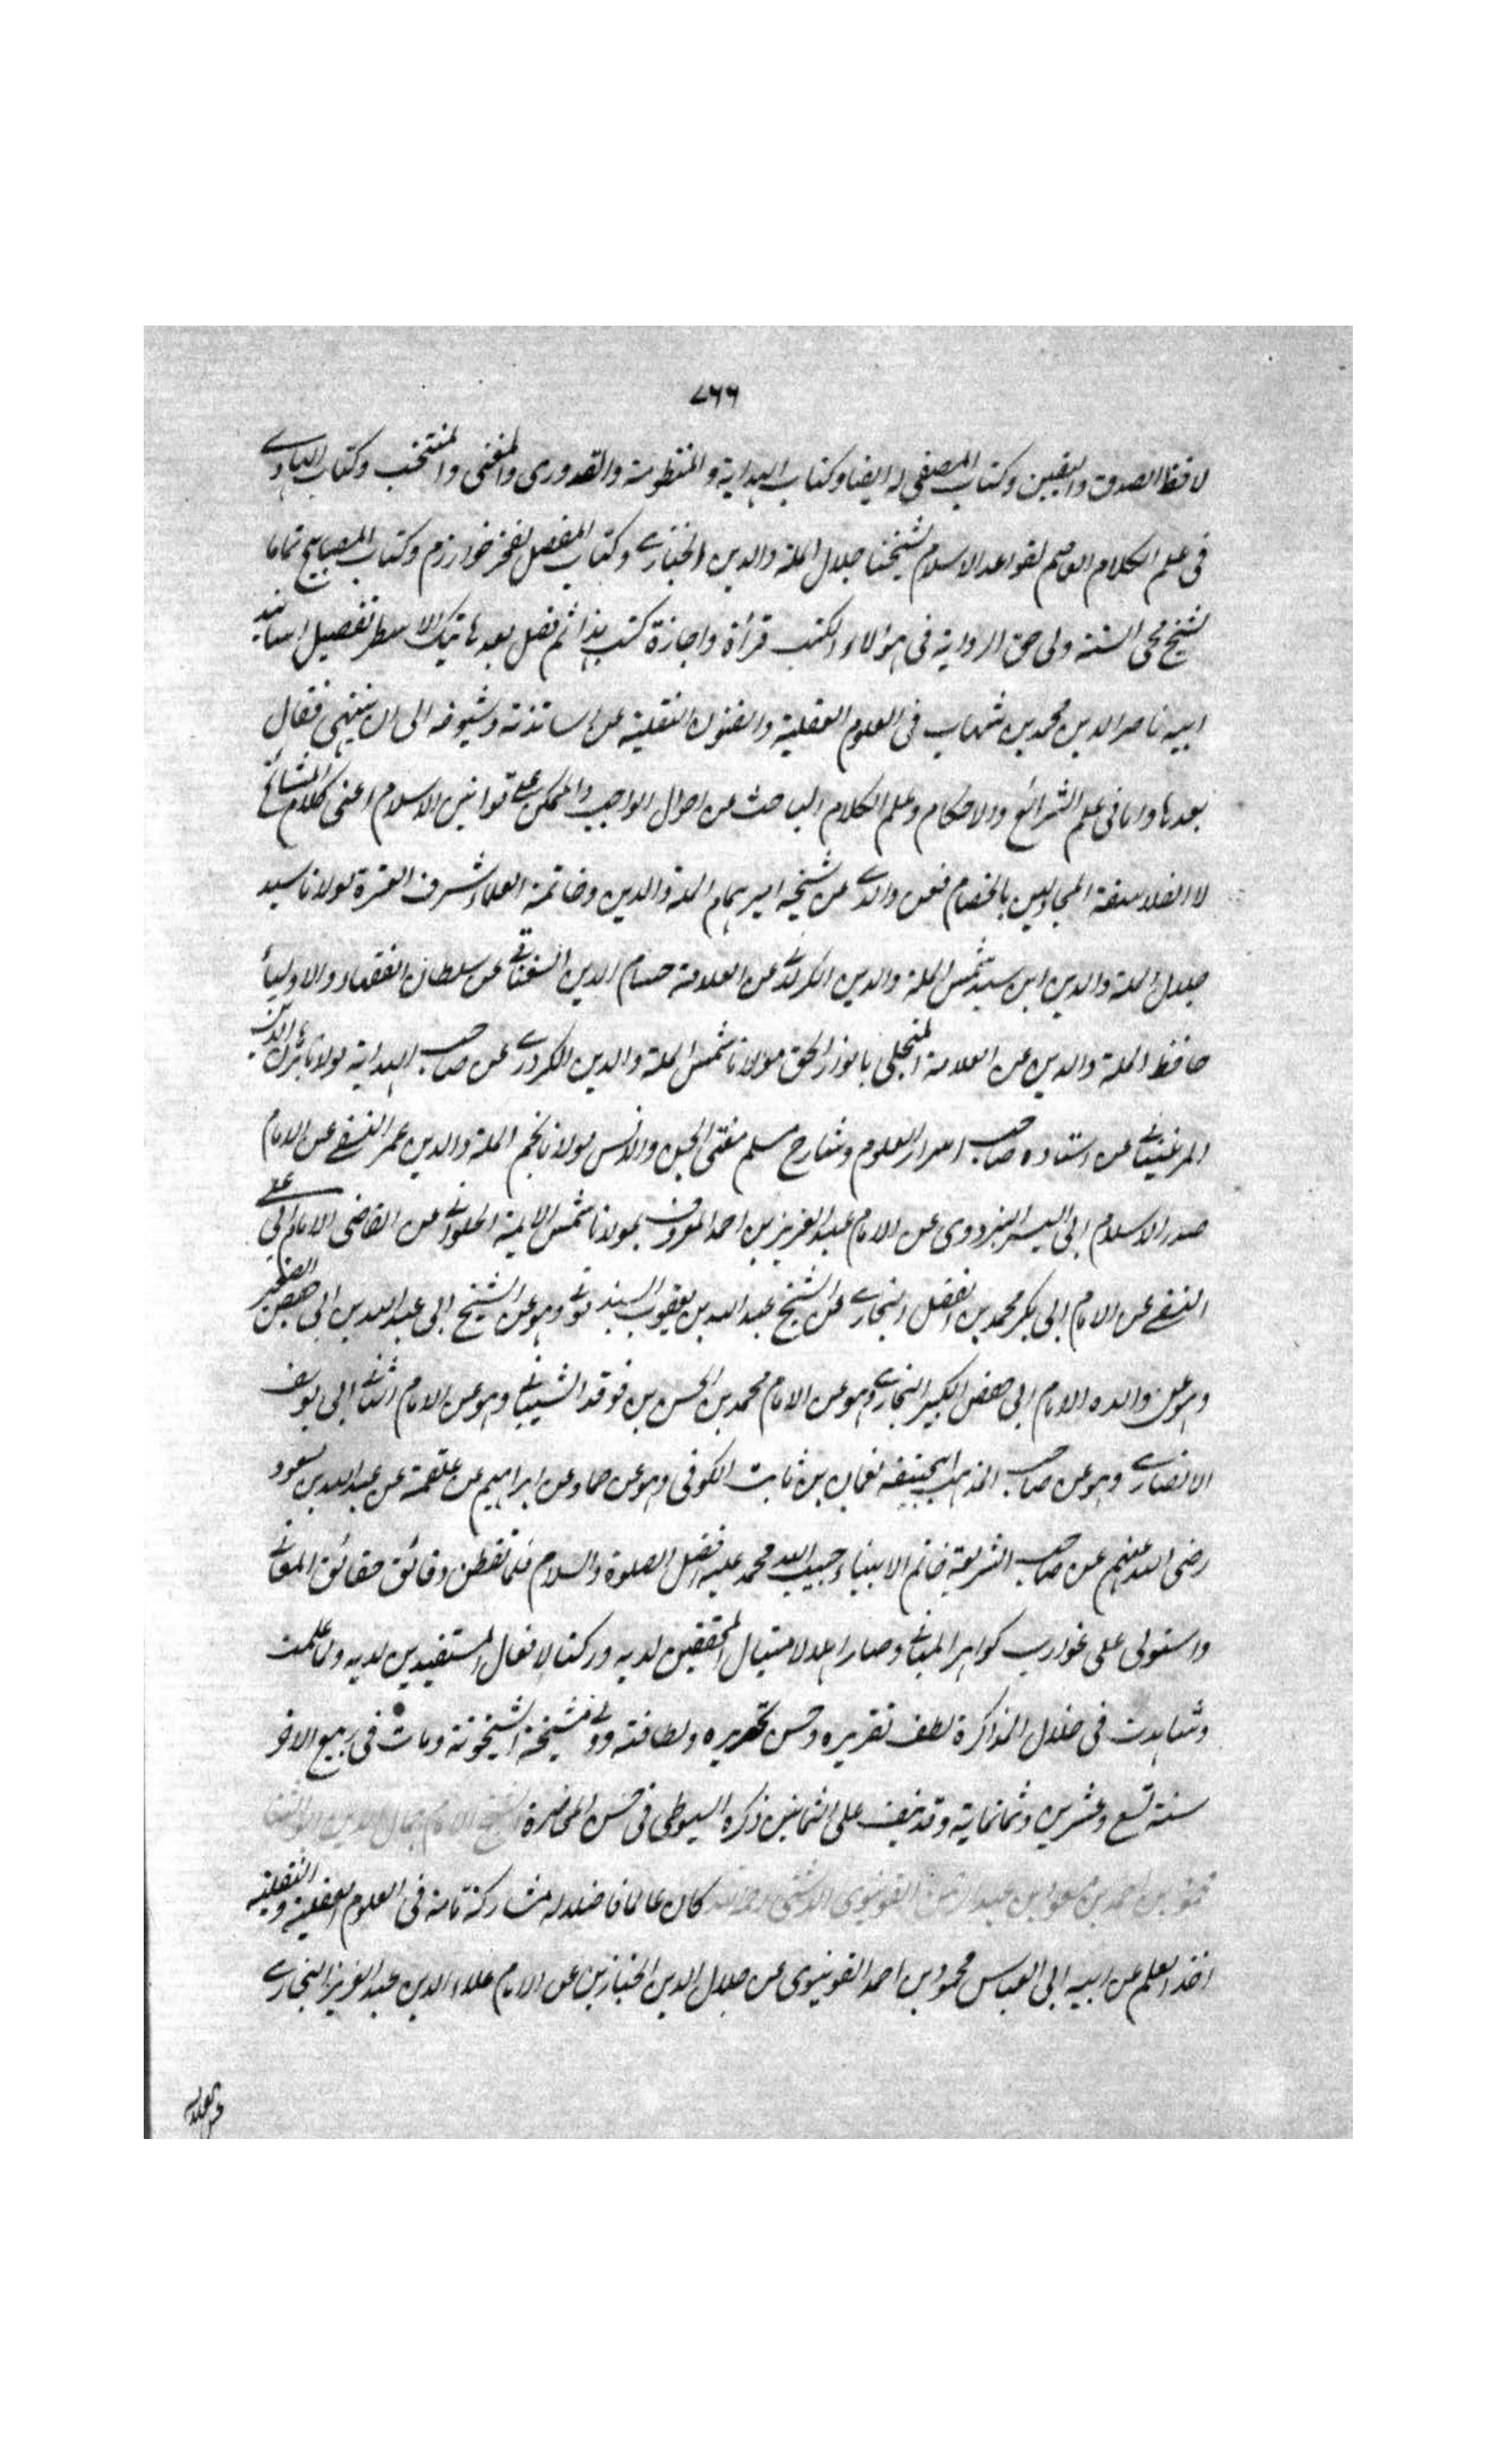 ٧٦٦
لافظ الصدق واليقين وكتاب المصفى له ايضا وكتاب الهداية والمنظومة والقدورى والمغنى والمنتخب وكتاب الهادى
فى علم الكلام لقواعد الاسلام لشيخنا جلال الملة والدين الخبازى وكتاب المفصل لفخر خوارزم وكتاب المصابيح تماما
لشيخ محى السنة ولى حق الرواية فى هؤلاء الكتب قرأة واجازة كتب هذا ثم فصل بعد هاتيك الاسطر تفصيل اسانيد
ابيه ناصر الدين محمد بن شهاب فى العلوم العقلية والفنون النقلية عن اساتذته وشيوخه الى ان ينتهى فقال
بعدها واما فى علم الشرائع والاحكام وعلم الكلام الباحث عن احوال الواجب والممكن على قوانين الاسلام اعنى كلام المشائخ
لا الفلاسفة بالخصام فعن والدى عن شيخه امير همام الملة والدين وخاتمة العلماء شرف العترة مولانا سيد
جلال الملة والدين ابن سيد شمس الملة والدين الكرلانى عن العلامة حسام الدين السغناقى عن سلطان الفقهاء والاولياء
حافظ الملة والدين عن العلامة المتجلى بانوار الحق مولانا شمس الملة والدين الكردرى عن صاحب الهداية مولانا برهان الدين
المرغينانى عن استاده صاحب اسرار العلوم وشارح مسلم مفتى الجن والانس مولانا نجم الملة والدين عمر النسفى عن الامام
صدر الاسلام ابى اليسر البزدوى عن الامام عبد العزيز بن احمد المعروف بمولانا شمس الايمة الحلوانى عن القاضى الامام ابى على
النسفى عن الامام ابى بكر محمد بن الفضل البخارى عن الشيخ عبد الله بن يعقوب السبذمونى وهو عن الشيخ ابى عبد الله بن ابى حفص الصغير
وهو عن والده الامام ابى حفص الكبير البخارى وهو عن الامام محمد بن الحسن بن فرقد الشيبانى وهو عن الامام الثانى ابى يوسف
الانصارى وهو عن صاحب المذهب ابيحنيفه نعمان بن ثابت الكوفى وهو عن حماد عن ابراهيم عن علقمة عن عبد الله بن مسعود
رضى الله عنهم عن صاحب الشريعة خاتم الانبياء حبيب الله محمد عليه افضل الصلوة والسلام فلما تفطن دقائق حقائق المعانى
واستولى على غوارب كواهر المبانى وصار اهلا المحققين لديه وركنا المستفيدين لديه ولما علمت
وشاهدت فى خلال المذاكرة لطف تقريره وحسن تحريره ولطافته وولى مشيخة الشيخونية ومات فى ربيع الاخر
سنة تسع وعشرين وثمانماية وقد نيف على الثمانين ذكره السيوطى فى حسن المحاضرة الشيخ الامام جمال الدين ابو الثنا
محمود بن احمد بن مسعود بن عبد الرحمن القونيوى الدمشقى رحمه الله كان عالما فاضلا له مشاركة تامة فى العلوم العقلية والنقلية
اخذ العلم عن ابيه ابى العباس محمود بن احمد القونيوى عن جلال الدين الخبازى عن الامام علاء الدين عبد العزيز البخارى